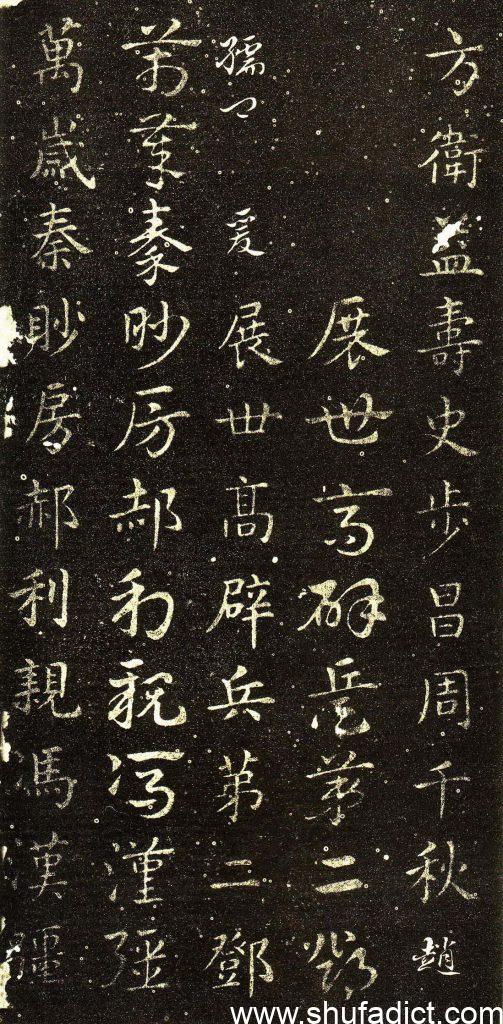 方衛益壽史步昌周千秋趙
展世高辟兵第二鄧
孺卿爰展丗高辟兵第二鄧
萬歲秦眇房郝利親馮漢彊
萬歲秦眇房郝利親馮漢彊
www.shufadict.com